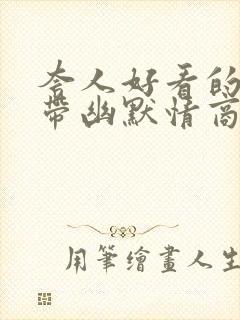 夸人好看的
带幽默情商
用筆繪畫人生